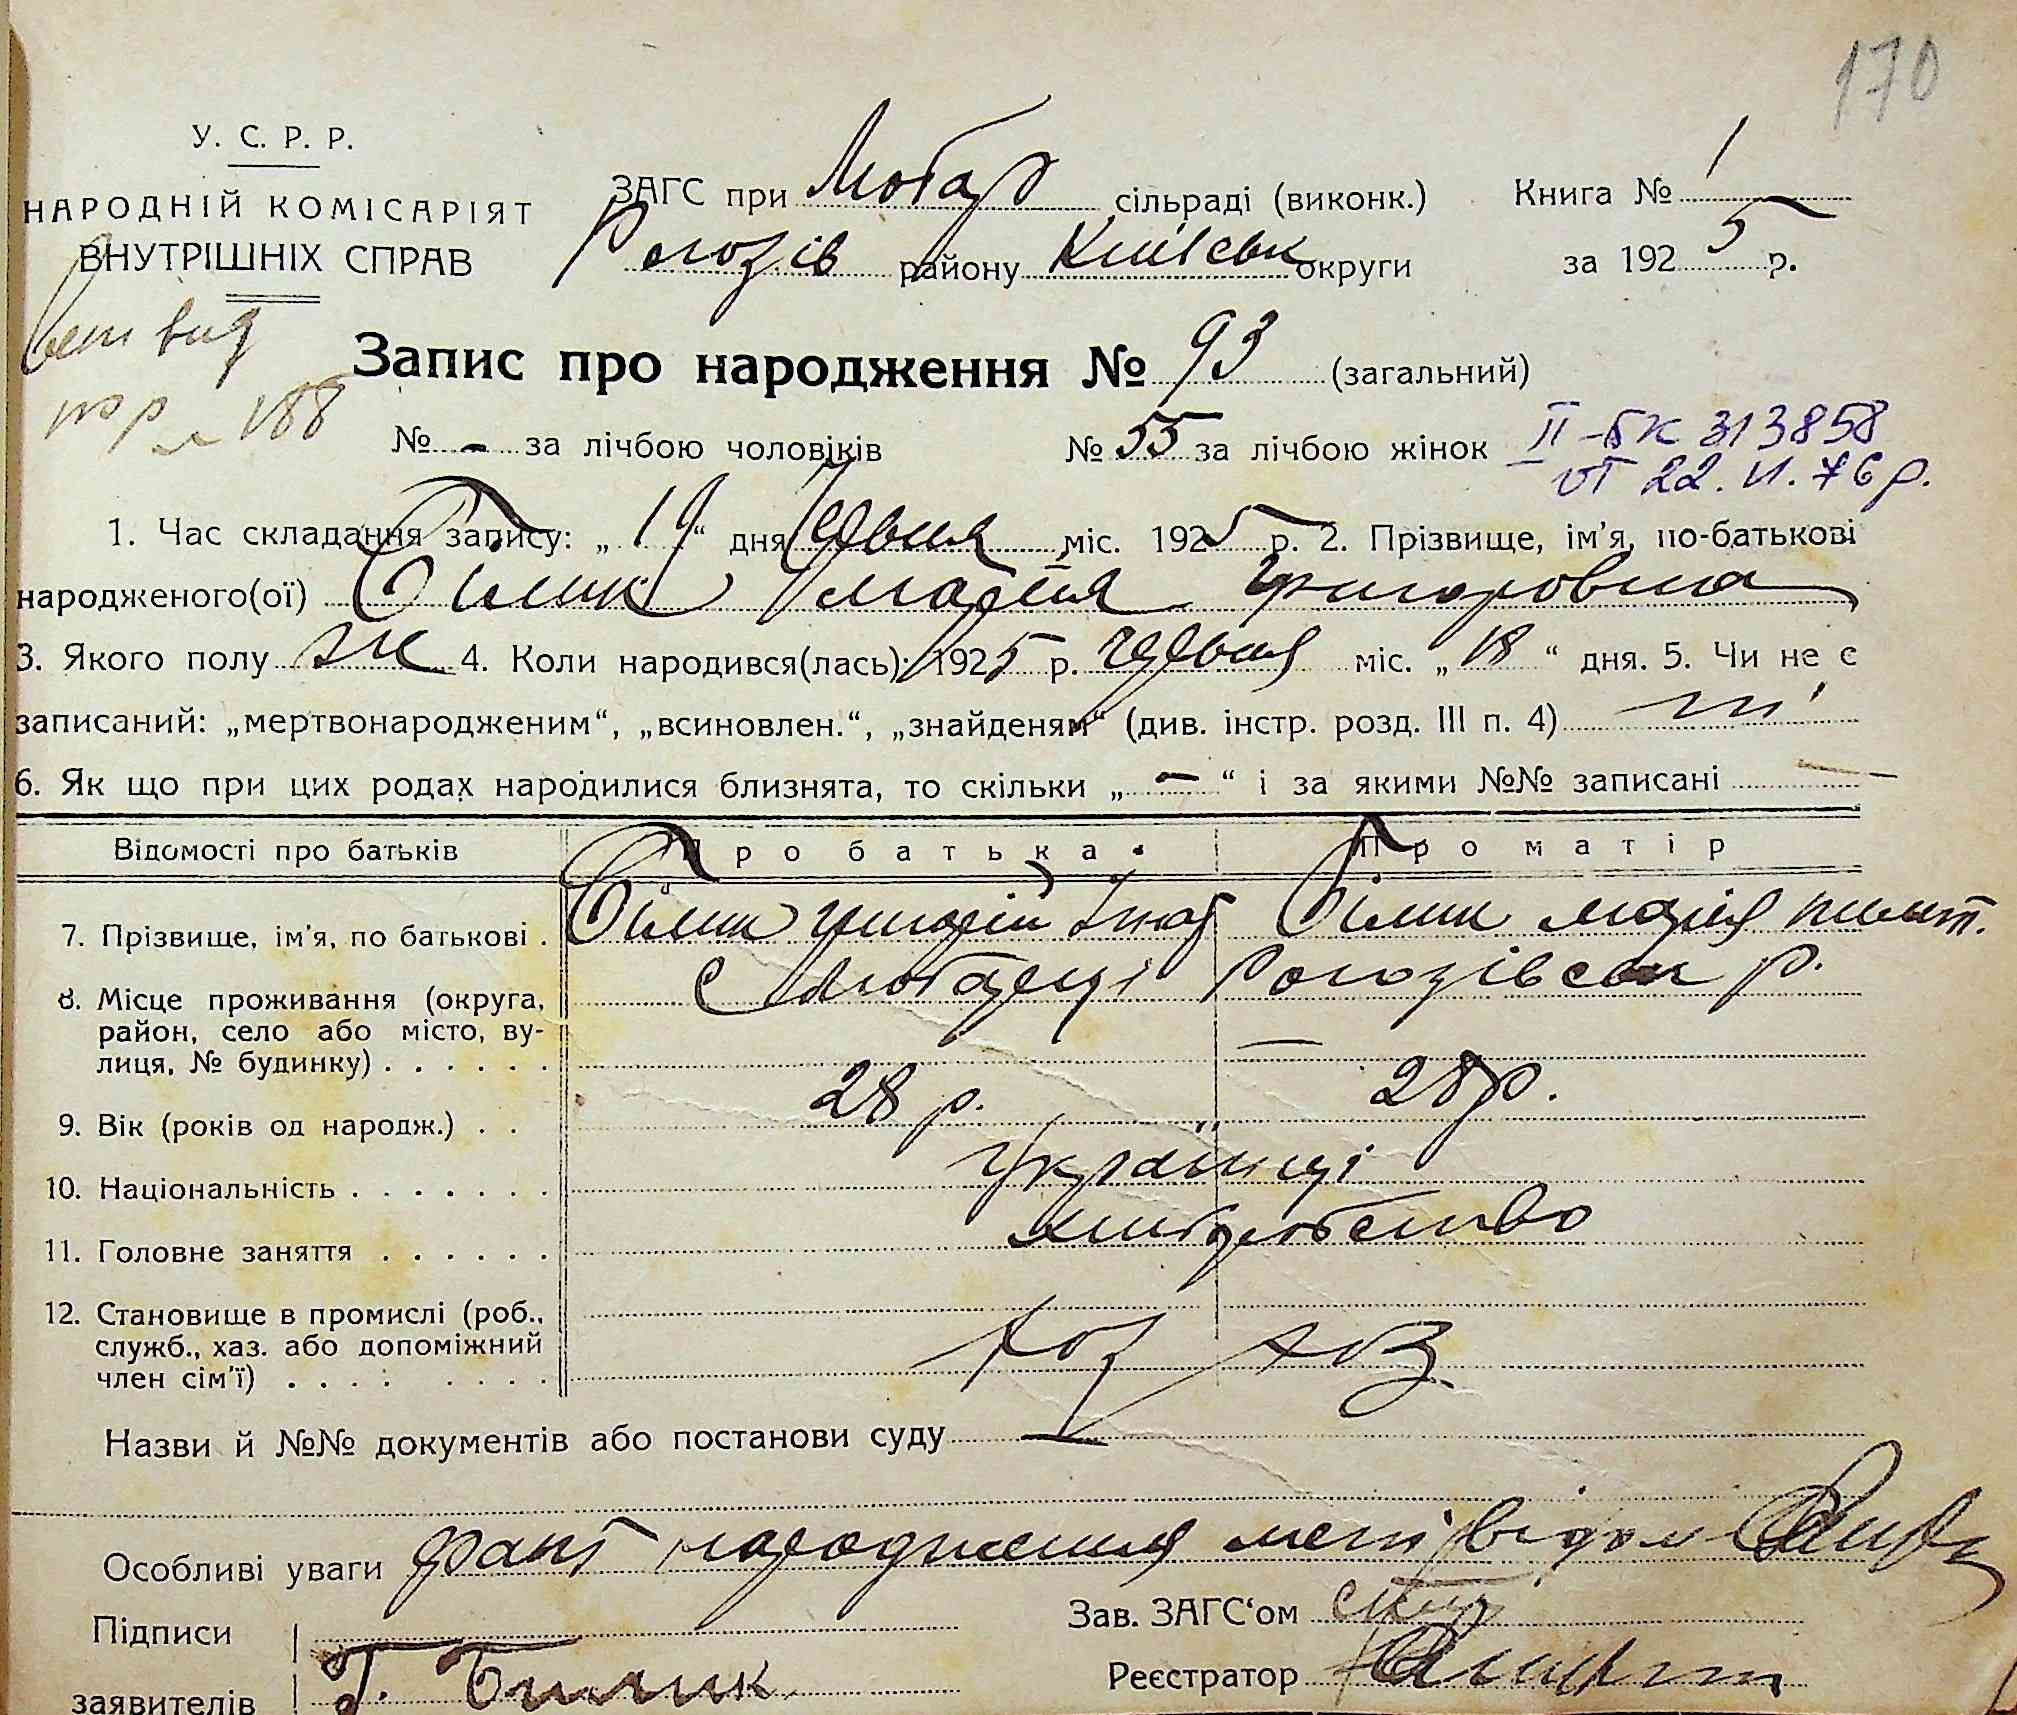 170
У. С. Р. Р.
НАРОДНІЙ КОМІСАРІЯТ
ВНУТРІШНІХ СПРАВ
ЗАГС при Любар сільраді (виконк.)
Рогозів району Київськ округи
Книга № 1
за 1925 р.
вид
188
Запис про народження № 93 (загальний)
№ - за лічбою чоловіків № 55 за лічбою жінок
II-БК 313858
от 22. VI. 76 р.
1. Час складання запису: „19“ дня Червня міс. 1925 р. 2. Прізвище, ім'я, по-батькові
народженого(ої) Білик Марія Григоровна
3. Якого полу ж 4. Коли народився(лась): 1925 р. червня міс. „18“ дня. 5. Чи не є
записаний: „мертвонародженим“, „всиновлен.“, „знайденям“ (див. інстр. розд. III п. 4) ні
6. Як що при цих родах народилися близнята, то скільки „-“ і за якими №№ записані -
Відомості про батьків Про батька Про матір
7. Прізвище, ім'я, по батькові . Білик Григорій Білик Марія
8. Місце проживання (округа, с Любарці Рогозівськ р.
район, село або місто, ву-
лиця, № будинку) . . . . . . —
9. Вік (років од народж.) . . 28 р. 28 р.
10. Національність . . . . . . . Українці
11. Головне заняття . . . . . . хліборобство
12. Становище в промислі (роб.,
служб., хаз. або допоміжний хоз
член сім'ї) . . . . . . . .
Назви й №№ документів або постанови суду —
Особливі уваги факт народження мені відом
Зав. ЗАГС‘ом
Підписи
заявителів Г. Билик
Реєстратор